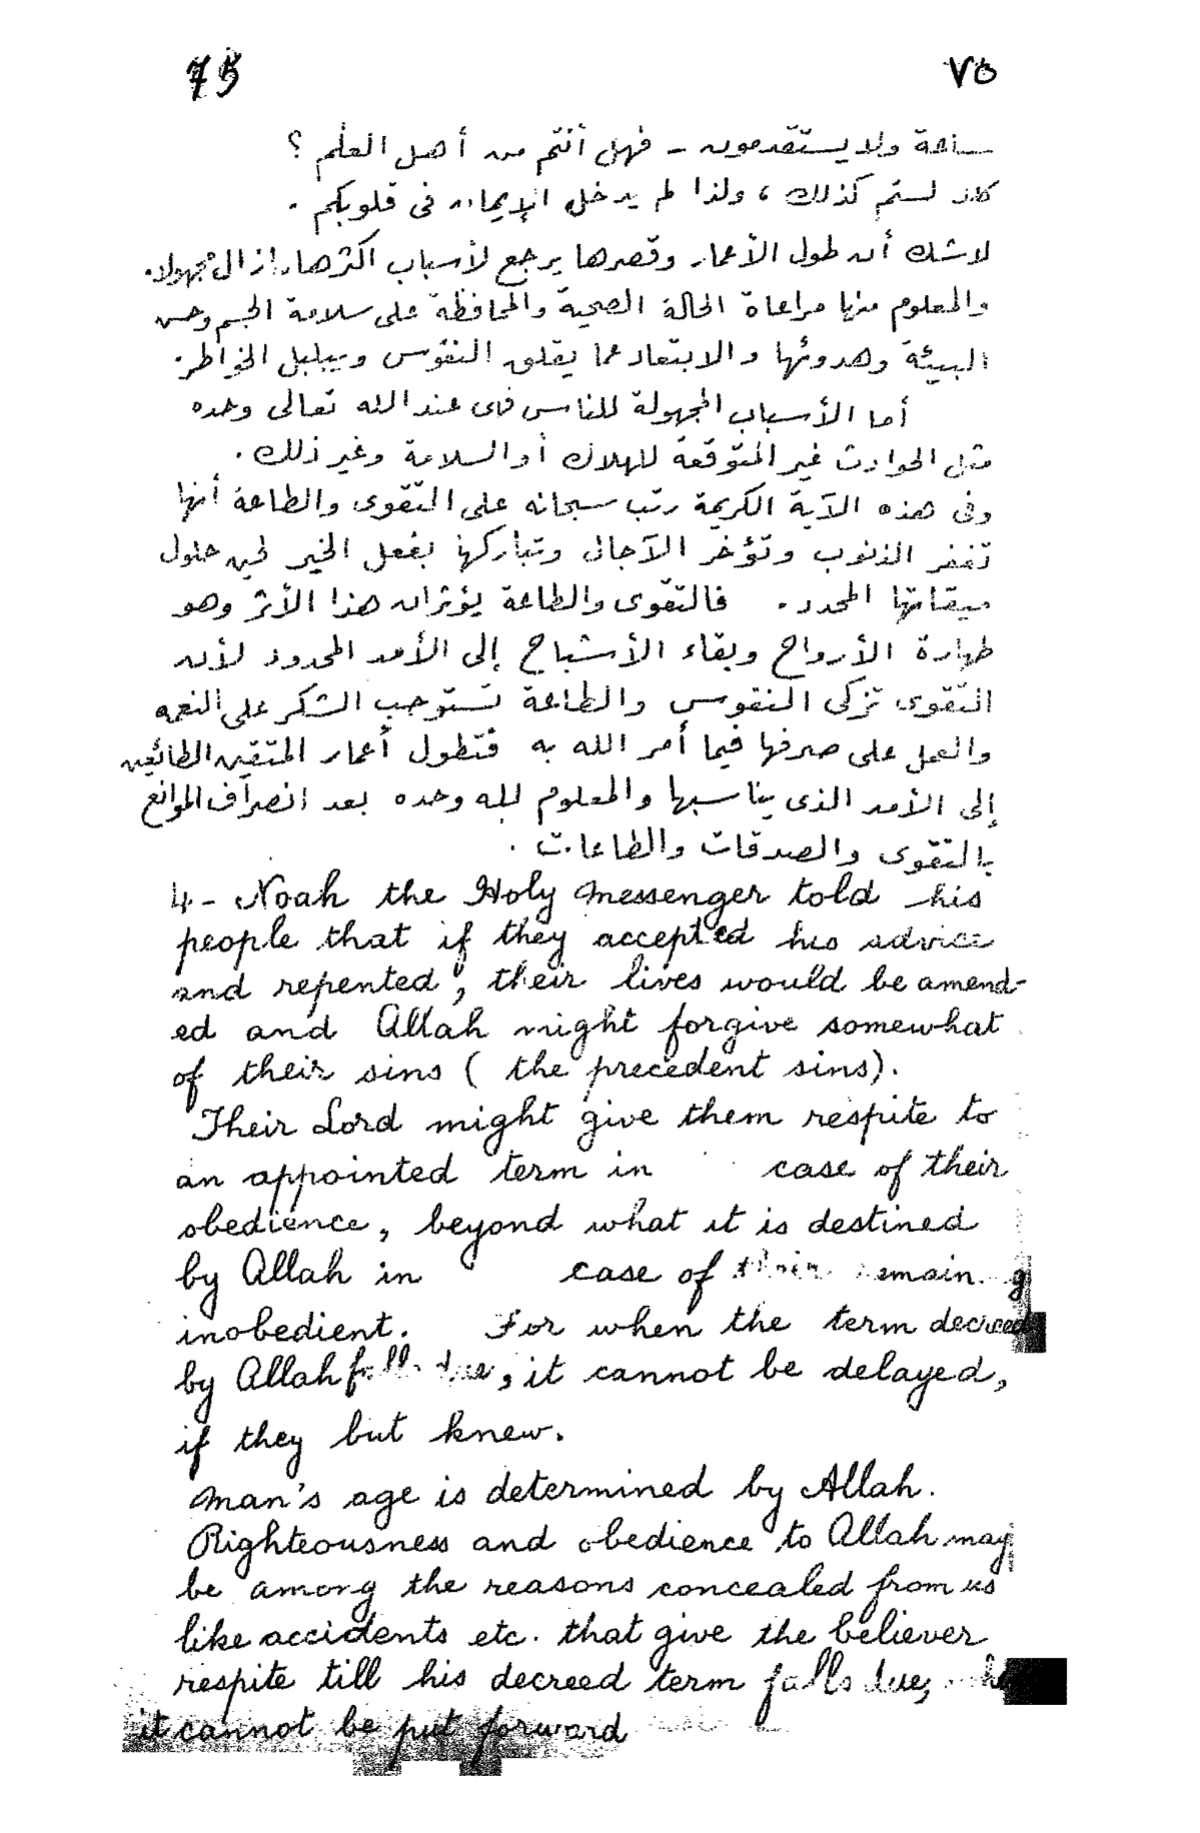 75 ٧٥
ساعة ولا يستقدمون - فهل أنتم من أهل العلم ؟
كلا لستم كذلك ، ولذا لم يدخل الإيمان فى قلوبكم .
لاشك أن طول الأعمار وقصرها يرجع لأسباب أكثرها مازال مجهولا .
والمعلوم منها مراعاة الحالة الصحية والمحافظة على سلامة الجسم وحسن
البيئة وهدوئها والابتعاد عما يقلق النفوس ويبلبل الخواطر .
أما الأسباب المجهولة للناس فهى عند الله تعالى وحده
مثل الحوادث غير المتوقعة للهلاك أو السلامة وغير ذلك .
وفى هذه الآية الكريمة رتب سبحانه على التقوى والطاعة أنها
تغفر الذنوب وتؤخر الآجال وتباركها بفعل الخير لحين حلول
ميقاتها المحدد . فالتقوى والطاعة يؤثران هذا الأثر وهو
طهارة الأرواح وبقاء الأشباح إلى الأمد المحدود لأن
التقوى تزكى النفوس والطاعة تستوجب الشكر على النعمة
والعمل على صرفها فيما أمر الله به فتطول أعمار المتقين الطائعين
إلى الأمد الذى يناسبها والمعلوم لله وحده بعد انصراف الموانع
بالتقوى والصدقات والطاعات .
4 - Noah the Holy Messenger told his
people that if they accepted his advice
and repented, their lives would be amend-
ed and Allah might forgive somewhat
of their sins ( the precedent sins).
Their Lord might give them respite to
an appointed term in case of their
obedience, beyond what it is destined
by Allah in case of their remain g
inobedient. For when the term decreed
by Allah falls due, it cannot be delayed,
if they but knew.
Man's age is determined by Allah.
Righteousness and obedience to Allah may
be among the reasons concealed from us
like accidents etc. that give the believer
respite till his decreed term falls due,
it cannot be put forward